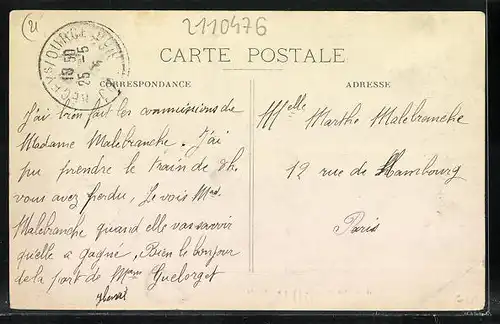 21
2110476
CARTE POSTALE
CORRESPONDANCE
ADRESSE
J'ai bien fait les commissions de
Madame Malebranche. J'ai
pu prendre le train de 2h.
vous avez perdu, Je vois Mad.
Malebranche quand elle va savoir
qu'elle a gagné, Bien le bonjour
de la part de Mme Guelorget
Melle Marthe Malebranche
12 rue de Hambourg
Paris